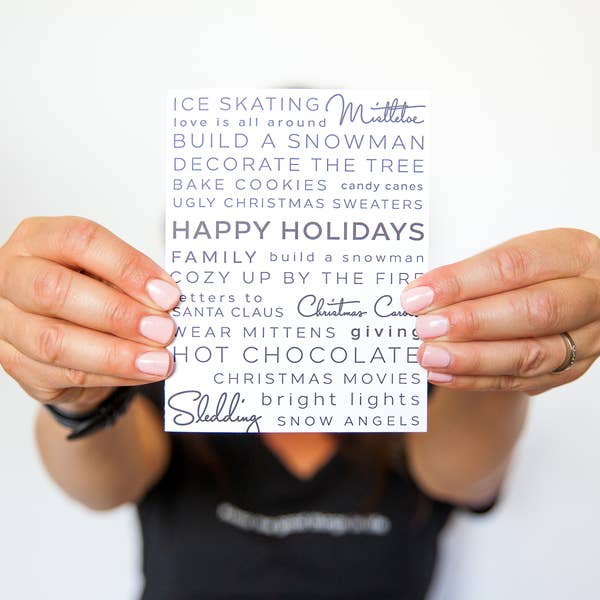 ICE SKATING Mistletoe
love is all around
BUILD A SNOWMAN
DECORATE THE TREE
BAKE COOKIES candy canes
UGLY CHRISTMAS SWEATERS
HAPPY HOLIDAYS
FAMILY build a snowman
COZY UP BY THE FIRE
etters to
SANTA CLAUS Christmas Caro
WEAR MITTENS giving
HOT CHOCOLATE
CHRISTMAS MOVIES
bright lights
Sledding SNOW ANGELS